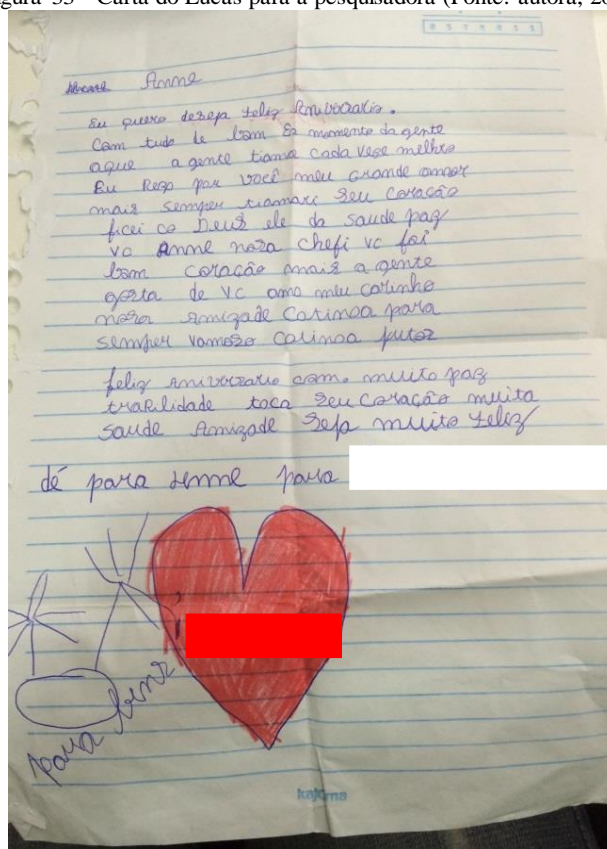 Carta do Lucas para a pesquisadora (Fonte: autora, 20
Anne
Eu quero deseja feliz Aniverzario.
Com tudo de bom momento da gente
aque a gente tiama cada vese melhro
Eu Rego por você meu grande amor
mais sempre tiamari seu coração
ficei co Deus ele da saude paz
vo Anne noza chefi vc foi
bom coração mais a gente
gosta de vc amo meu carinho
noza Amizade Carinoa para
sempre vamozo carinoa
feliz Aniverzario com. muito paz
trakilidade toca seu coração muita
saude Amizade Seja muito feliz
dé para para
para
kajoma